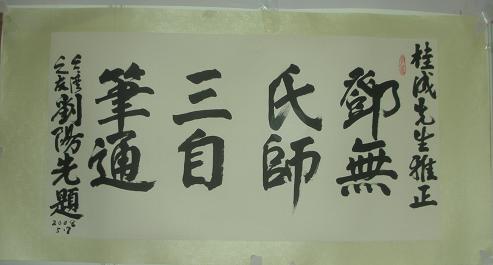 桂成先生雅正
鄧無
氏師
三自
筆通
之友劉陽先題
2008
5.8